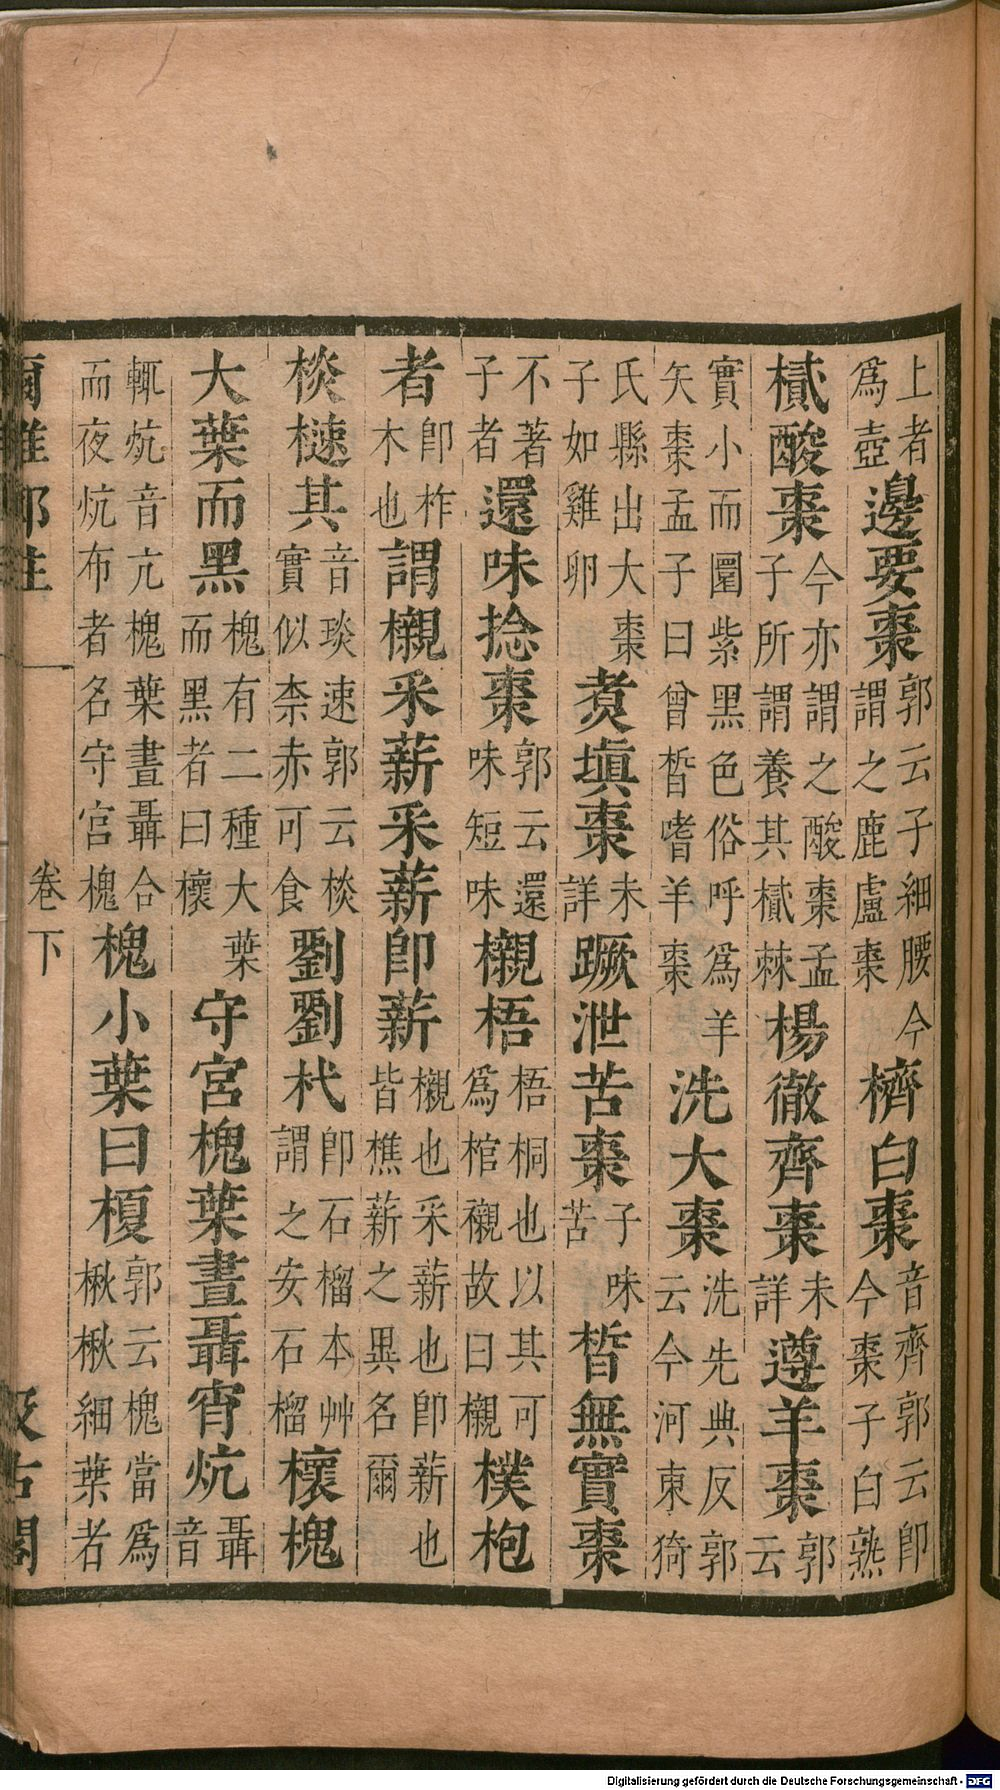 上者為壺邊要棗郭云子細腰今謂之鹿盧棗櫅白棗音齊郭云即今棗子白熟
樲酸棗今亦謂之酸棗孟子所謂養其樲棘楊徹齊棗未詳遵羊棗郭云
實小而圓紫黑色俗呼為羊矢棗孟子曰曾晳嗜羊棗洗大棗洗先典反郭云今河東猗
氏縣出大棗子如雞卵煑填棗未詳蹶泄苦棗子味苦晳無實棗
不著子者還味捻棗郭云還味短味櫬梧梧桐也以其可為棺櫬故曰櫬樸枹
者即柞木也謂櫬采薪采薪即薪櫬也采薪也即薪也皆樵薪之異名爾
棪樕其音琰速郭云棪實似柰赤可食劉劉杙即石榴本艸謂之安石榴櫰槐
大葉而黑槐有二種大葉而黑者曰櫰守宮槐葉晝聶宵炕聶音
輒炕音亢槐葉晝聶合而夜炕布者名守宮槐槐小葉曰榎郭云槐當為楸楸細葉者
爾雅郭注 卷下 汲古閣
Digitalisierung gefördert durch die Deutsche Forschungsgemeinschaft - DFG